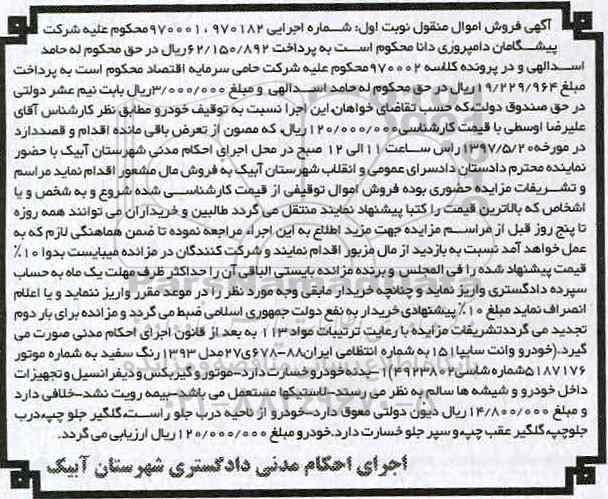 آگهی فروش اموال منقول نوبت اول: شماره اجرایی ۹۷۰۱۸۲ ،۹۷۰۰۰۱محکوم علیه شرکت
پیشگامان دامپروزی دانا محکوم است به پرداخت ۶۲/۱۵۰/۸۹۲ریال در حق محکوم له حامد
اسدالهی و در پرونده کلاسه ۹۷۰۰۰۲محکوم علیه شرکت حامی سرمایه اقتصاد محکوم است به پرداخت
مبلغ ۱۹/۲۲۹/۹۶۴ریال در حق محکوم له حامد اسدالهی و مبلغ ۳/۰۰۰/۰۰۰ریال بابت نیم عشر دولتی
در حق صندوق دولت،که حسب تقاضای خواهان، این اجرا نسبت به توقیف خودرو مطابق نظر کارشناس آقای
علیرضا اوسطی با قیمت کارشناسی۱۲۰/۰۰۰/۰۰۰ریال، که مصون از تعرض باقی مانده اقدام و قصددارد
در مورخه۱۳۹۷/۵/۲۰راس ساعت ۱۱الی ۱۲ صبح در محل اجرای احکام مدنی شهرستان آبیک با حضور
نماینده محترم دادستان دادسرای عمومی و انقلاب شهرستان آبیک به فروش مال مشعور اقدام نماید مراسم
و تشریفات مزایده حضوری بوده فروش اموال توقیفی از قیمت کارشناسی شده شروع و به شخص و یا
اشخاص که بالاترین قیمت را کتبا پیشنهاد نمایند منتقل می گردد طالبین و خریداران می توانند همه روزه
تا پنج روز قبل از مراسم مزایده جهت مزید اطلاع به این اجراء مراجعه نموده تا ضمن هماهنگی لازم که به
عمل خواهد آمد نسبت به بازدید از مال مزبور اقدام نمایند و شرکت کنندگان در مزانده میبایست بدوا ۱۰٪
قیمت پیشنهاد شده را فی المجلس و برنده مزانده بایستی الباقی آن را حداکثر ظرف مهلت یک ماه به حساب
سپرده دادگستری واریز نماید و چنانچه خریدار مابقی وجه مورد نظر را در موعد مقرر واریز ننماید و یا اعلام
انصراف نماید مبلغ ۱۰٪ پیشنهادی خریدار به نفع دولت جمهوری اسلامی ضبط می گردد و مزانده برای بار دوم
تجدید می گرددتشریفات مزایده با رعایت ترتیبات مواد۱۱۳ به بعد از قانون اجرای احکام مدنی صورت می
گیرد.(خودرو وانت سایپا۱۵۱به شماره انتظامی ایران۸۸-۶۷۸ی۲۷مدل ۱۳۹۳رنگ سفید به شماره موتور
۵۱۸۷۱۷۶شماره شاسی۴۹۲۳۸۰۲)۱-بدنه خودرو خسارت دارد-موتور و گیربکس و دیفرانسیل و تجهیزات
داخل خودرو و شیشه ها سالم به نظر می رسد-لاستیکها مستعمل می باشد-بیمه رویت نشد-خلافی دارد
و مبلغ ۱۴/۸۰۰/۰۰۰ریال دیون دولتی معوق دارد-خودرو از ناحیه درب جلو راست، گلگیر جلو چپ،درب
جلوچپ،گلگیر عقب چپ و سپر جلو خسارت دارد.خودرو مبلغ ۱۲۰/۰۰۰/۰۰۰ریال ارزیابی می گردد.
اجرای احکام مدنی دادگستری شهرستان آبیک